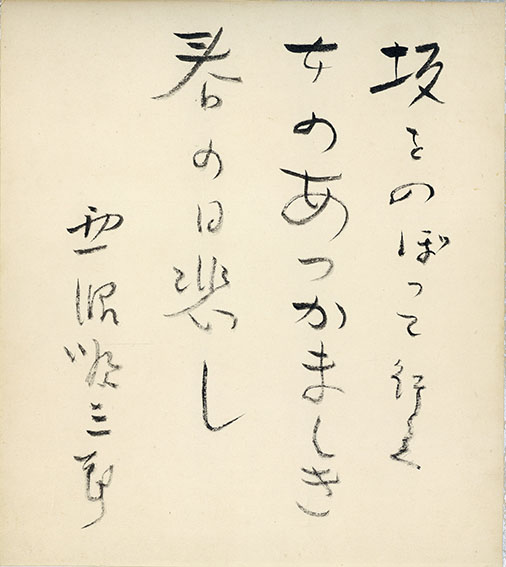 坂をのぼって行く
女のあつかましき
春の日悲し
西脇順三郎